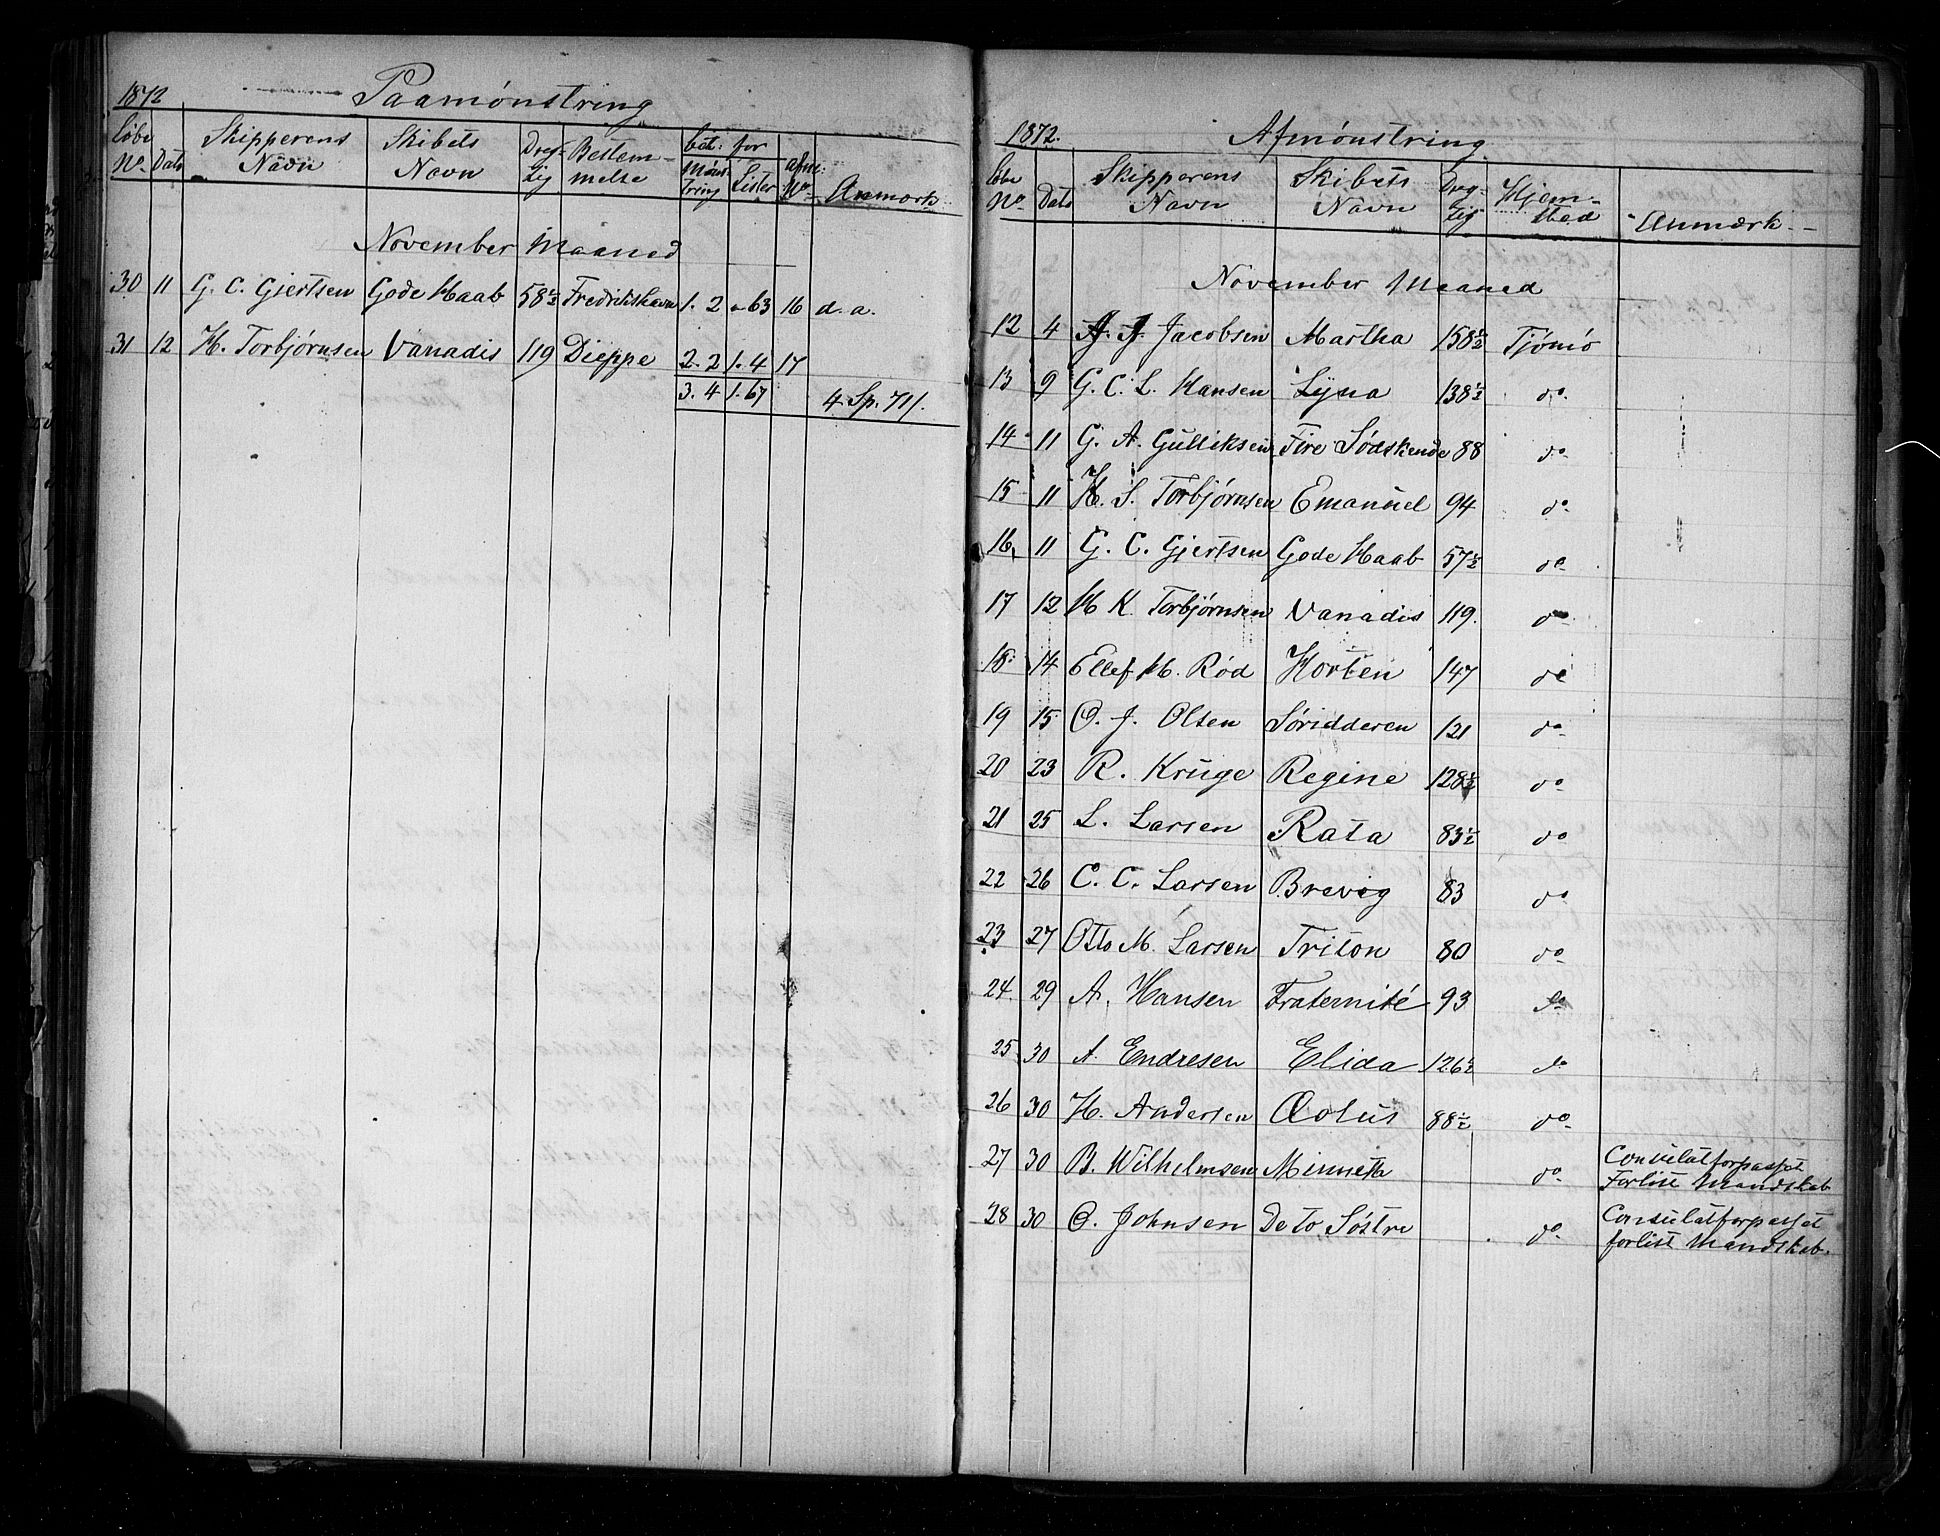 1872 Paamønstring
Løbe No. Dato Skipperens Navn Skibets Navn Dreg-tig Bestem-melse bet: for Mønstring Lister afm: No. Anmærk
November Maaned
30 11 G. C. Gjertsen Gode Haab 58½ Fredrikshavn 1. 2 "63 16 d. a.
31 12 H. Torbjørnsen Vanadis 119 Dieppe 2. 2 1. 4 17
3. 4 1. 67 4 Sp. 71 /.
1872. Afmønstring
Løbe No. Dato Skipperens Navn Skibets Navn Dreg-tig Hjem-sted Anmærk
November Maaned
12 4 A. J. Jacobsen Martha 158½ Tjømø
13 9 G. C. L. Hansen Lyna 138½ do
14 11 G. A. Gulliksen Fire Sødskende 88 do
15 11 H. S. Torbjørnsen Emanuel 94 do
16 11 G. C. Gjertsen Gode Haab 57½ do
17 12 H K. Torbjørnsen Vanadis 119. do
18 14 Ellef M. Rød Horten 147 do
19 15 O. J. Olsen Søridderen 121 do
20 23 R. Kruge Regine 128½ do
21 25 L. Larsen Rata 83½ do
22 26 C. C. Larsen Brevig 83 do
23 27 Otto M. Larsen Triton 80 do
24 29 A. Hansen Fraternité 93 do
25 30 A. Endresen Elida 126½ do
26 30 H. Andersen Æolus 88½ do
27 30 B. Wilhelmsen Minnetta do Consulatforpasset
Forlist Mandskab
28 30 O. Johnsen De to Søstre do Consulatforpasset
forlist Mandskab.